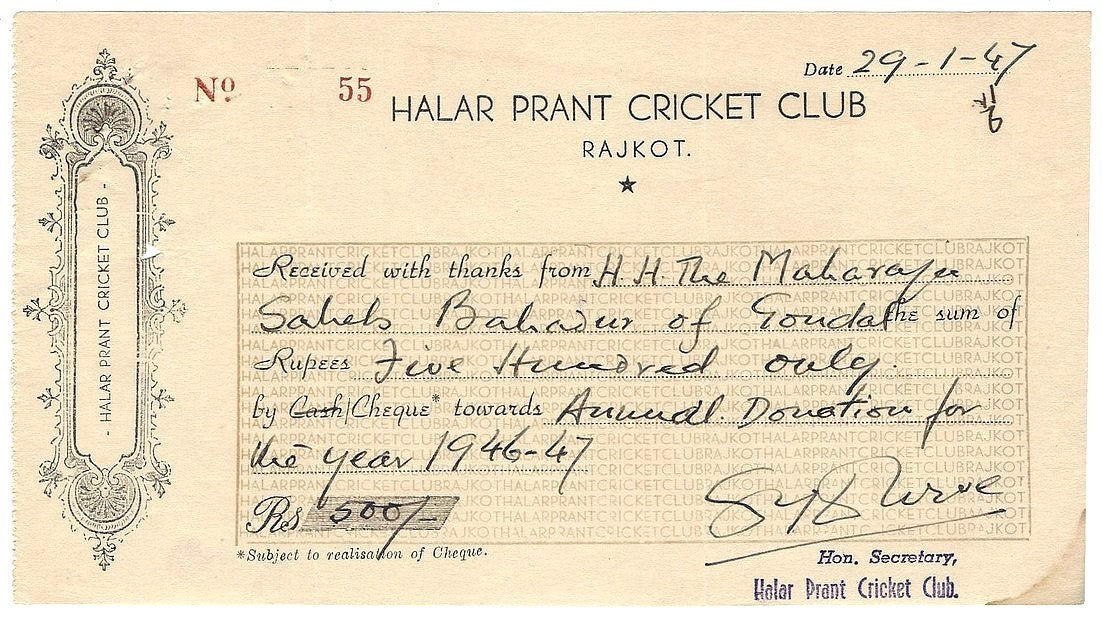 Nº 55
Date 29-1-47
HALAR PRANT CRICKET CLUB
RAJKOT.
- HALAR PRANT CRICKET CLUB -
Received with thanks from H.H. The Maharaja
Saheb Bahadur of Gondal the sum of
Rupees Five Hundred only.
by Cash/Cheque* towards Annual Donation for
the year 1946-47
Rs 500/-
*Subject to realisation of Cheque.
Hon. Secretary,
Halar Prant Cricket Club.